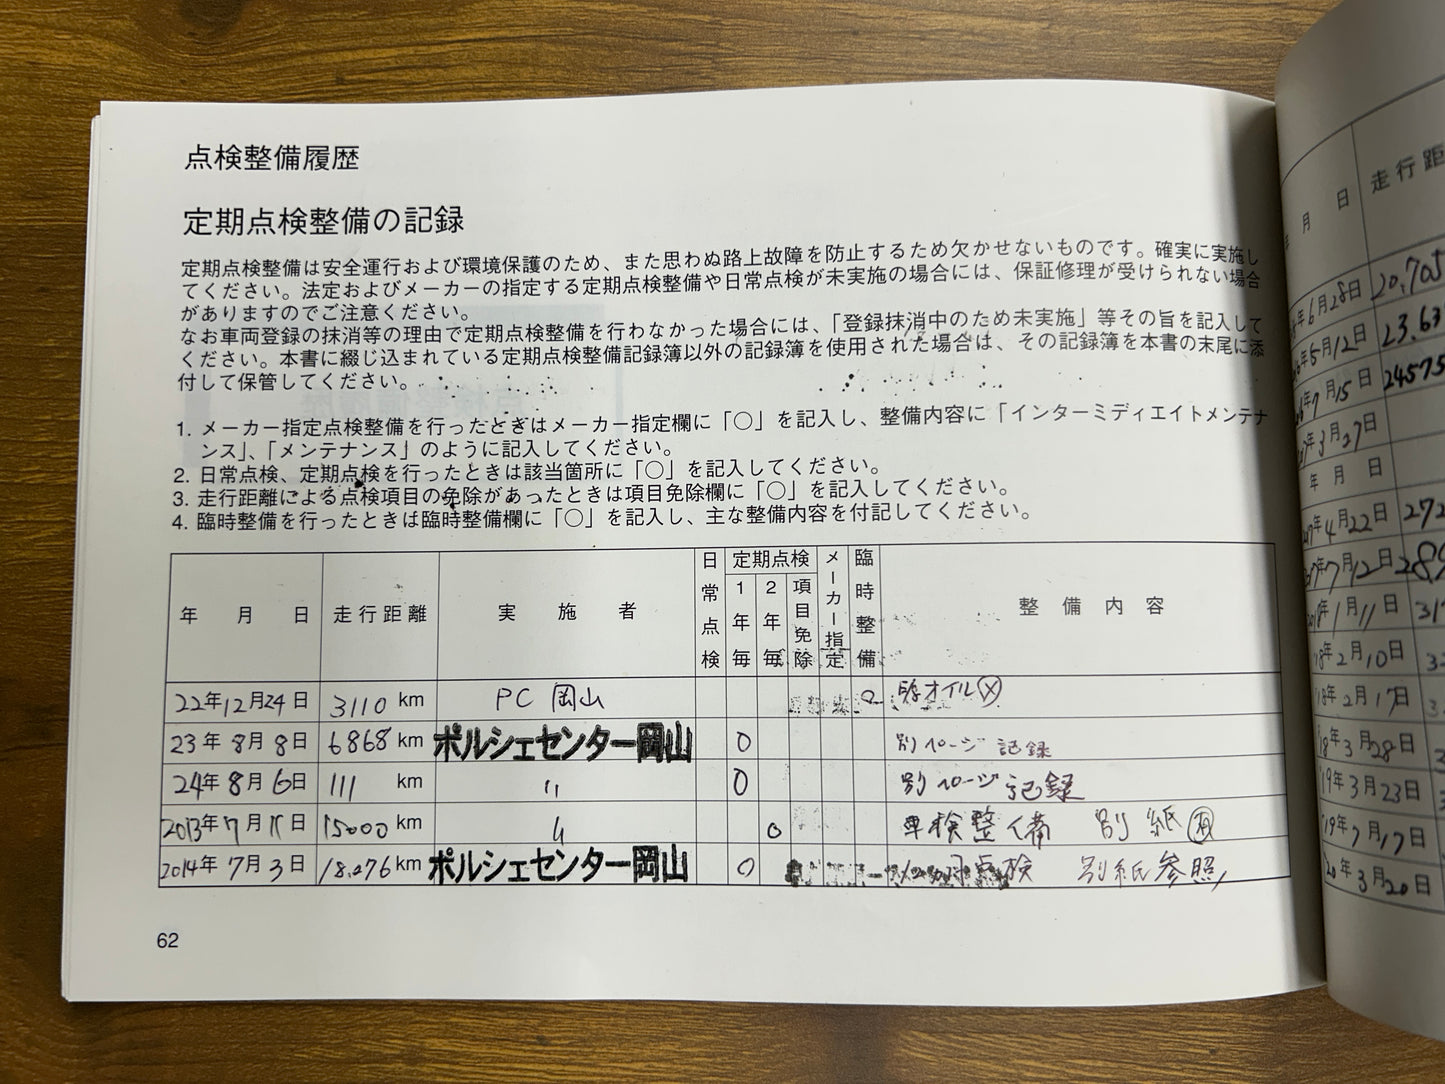 点検整備履歴
定期点検整備の記録
定期点検整備は安全運行および環境保護のため、また思わぬ路上故障を防止するため欠かせないものです。確実に実施し
てください。法定およびメーカーの指定する定期点検整備や日常点検が未実施の場合には、保証修理が受けられない場合
がありますのでご注意ください。
なお車両登録の抹消等の理由で定期点検整備を行わなかった場合には、「登録抹消中のため未実施」等その旨を記入して
ください。本書に綴じ込まれている定期点検整備記録簿以外の記録簿を使用された場合は、その記録簿を本書の末尾に添
付して保管してください。
1. メーカー指定点検整備を行ったときはメーカー指定欄に「○」を記入し、整備内容に「インターミディエイトメンテナ
ンス」、「メンテナンス」のように記入してください。
2. 日常点検、定期点検を行ったときは該当箇所に「○」を記入してください。
3. 走行距離による点検項目の免除があったときは項目免除欄に「○」を記入してください。
4. 臨時整備を行ったときは臨時整備欄に「○」を記入し、主な整備内容を付記してください。
年 月 日 走行距離 実施者 日常点検 定期点検 1年毎 2年毎 項目免除 メーカー指定 臨時整備 整備内容
22年12月24日 3110 km PC 岡山 ○ オイル
23年8月8日 6868 km ポルシェセンター岡山 ○ 別ページ記録
24年8月6日 111 km 〃 ○ 別ページ記録
2013年7月11日 15000 km 〃 ○ 車検整備 別紙
2014年7月3日 18.076 km ポルシェセンター岡山 ○ 点検 別紙参照
62
年 月 日 走行距
年6月28日 20,705
年5月12日 23.63
年7月15日 24575
年3月27日
年 月 日
年4月22日 272
年7月12日 289
年1月11日 31
18年2月10日
18年2月17日
18年3月28日
19年3月23日
19年7月17日
20年3月20日